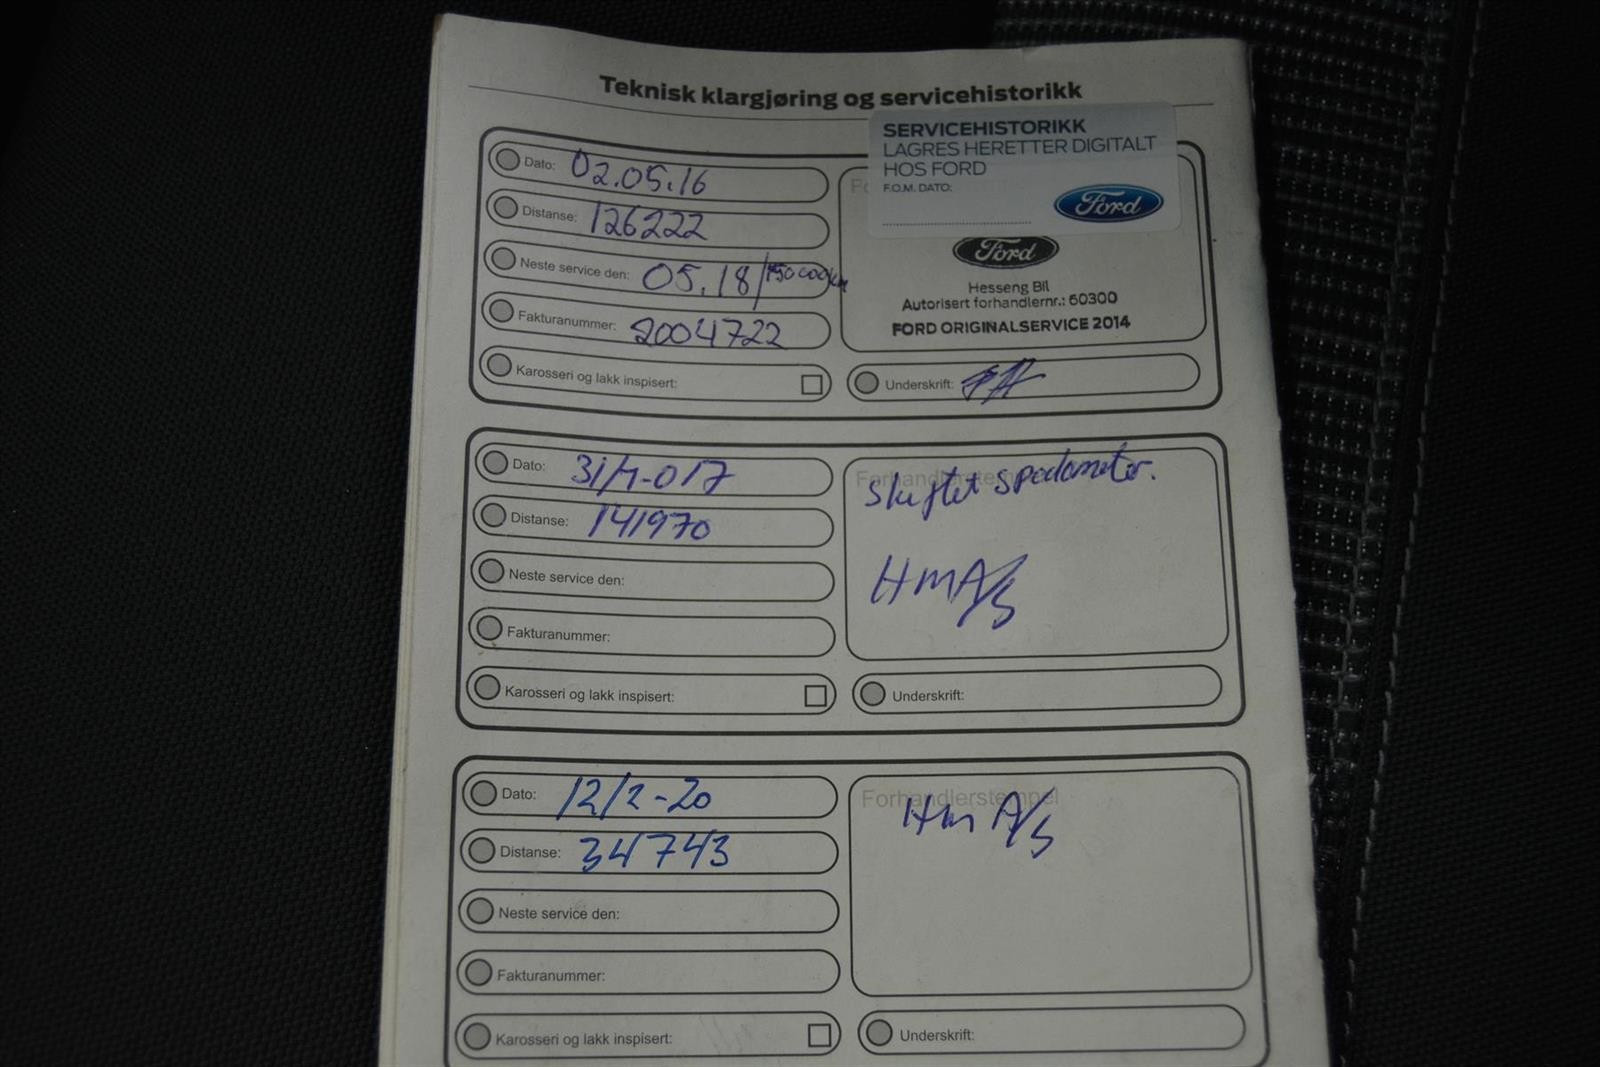 Teknisk klargjøring og servicehistorikk
SERVICEHISTORIKK
LAGRES HERETTER DIGITALT
HOS FORD
F.O.M. DATO:
Ford
Dato: 02.05.16
Distanse: 126222
Neste service den: 05.18/150000km
Fakturanummer: 2004722
Karosseri og lakk inspisert:
Ford
Hesseng Bil
Autorisert forhandlernr.: 60300
FORD ORIGINALSERVICE 2014
Underskrift:
Dato: 31/1-017
Distanse: 141970
Neste service den:
Fakturanummer:
Karosseri og lakk inspisert:
Forhandlerstempel
Skiftet spedometer.
HMA/S
Underskrift:
Dato: 12/2-20
Distanse: 34743
Neste service den:
Fakturanummer:
Karosseri og lakk inspisert:
Forhandlerstempel
Hm A/S
Underskrift: